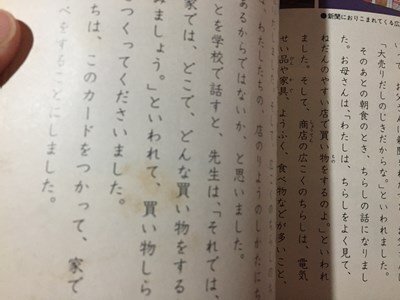 ●新聞におりこまれてくる広
「大売りだしのじきだからな。」といわれました。
そのあとの朝食のとき、ちらしの話になりまし
た。お母さんは、「わたしは、ちらしをよく見て、
ねだんのやすい店で買い物をするのよ。」といわれ
ました。そして、商店の広こくのちらしは、電気
せい品や家具、ようふく、食べ物などが多いこと、
わたしたちの、店のりようのしかたに
あるからではないか、と思いました。
とを学校で話すと、先生は、「それでは、
家では、どこで、どんな買い物をする
みましょう。」といわれて、買い物しら
つくってくださいました。
ちは、このカードをつかって、家で
べをすることにしました。